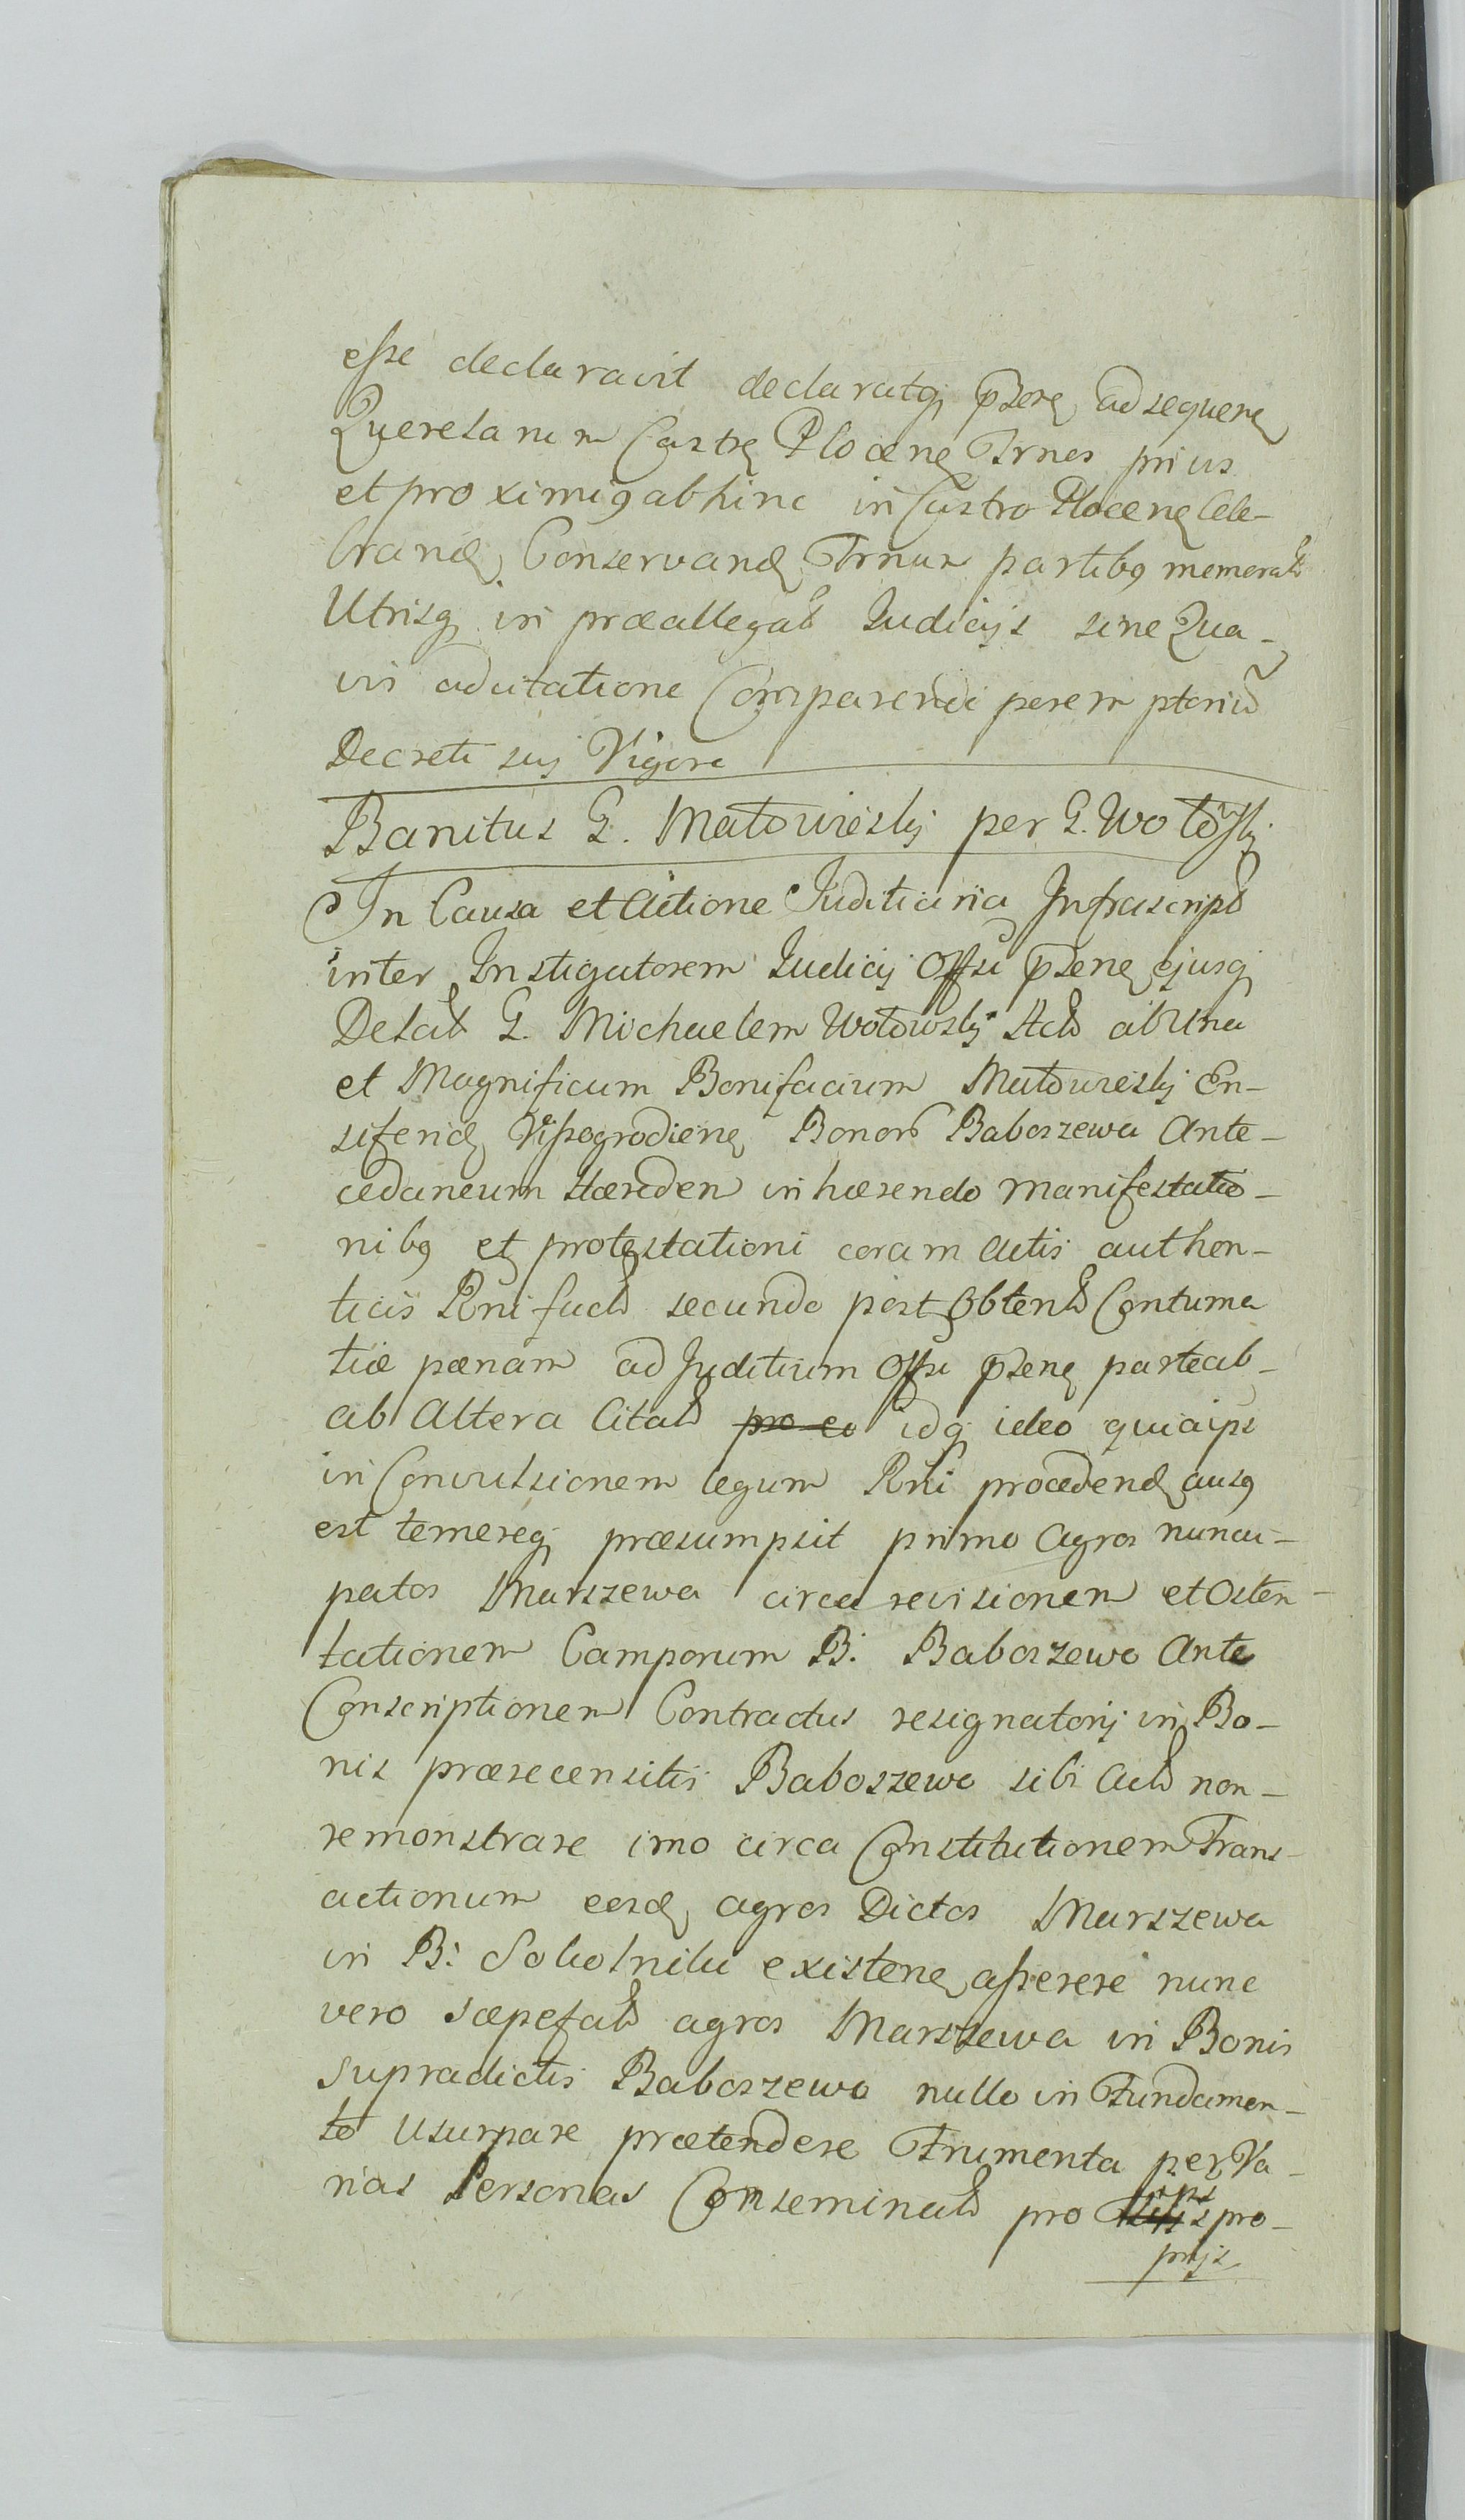 esse declaravit declaratq pstne ad sequene
Querelarum Castre Plocene Trnos prius
et proximig abhinc in Castro Plocene Cele-
brand, Conservand Trnum partibg memorat
Utrisq in præallegat Judicijs sine Qua-
vis adcitatione Comparendi peremptoriu
Decreti sui Vigore
Banitus G. Matowieski per G. Wotowski
In Causa et Actione Juditiaria Infrascript
inter Instigatorem Judicij Offsi pstne ejusq
Delat G. Michaelem Wotowski Act ab Una
et Magnificum Bonifacium Matowieski En-
siferu Vissogrodiene Bonor Baboszewa Ante-
cedaneum Hæreden inhærendo manifestatio-
nibg et protestationi coram Actis authen-
ticis Rni fact secundo post Obtent Contuma
tiæ pænam ad Juditium Offsi pstne parte ab-
ab Altera Citat pro eo idq ideo quia ips
in Convulsionem legum Rni procedend ausg
est temereq præsumpsit primo Agros nuncu-
patos Marszewa circa revisionem et Osten-
tationem Camporum B: Baboszewo Ante
Conscriptionem Contractus resignatorij in Bo-
nis præsecensitis Baboszewo sibi Act non-
remonstrare imo circa Constitutionem Trans-
actionum eosd agros Dictos Marszewa
in B: Sokolniki existene asserere nunc
vero sæpefat agros Marszewa in Bonis
supradictis Baboszewo nullo in Fundamen-
to Usurpare prætendere Frumenta per Va-
rias Personas Conseminat pro ips pro-
prijs